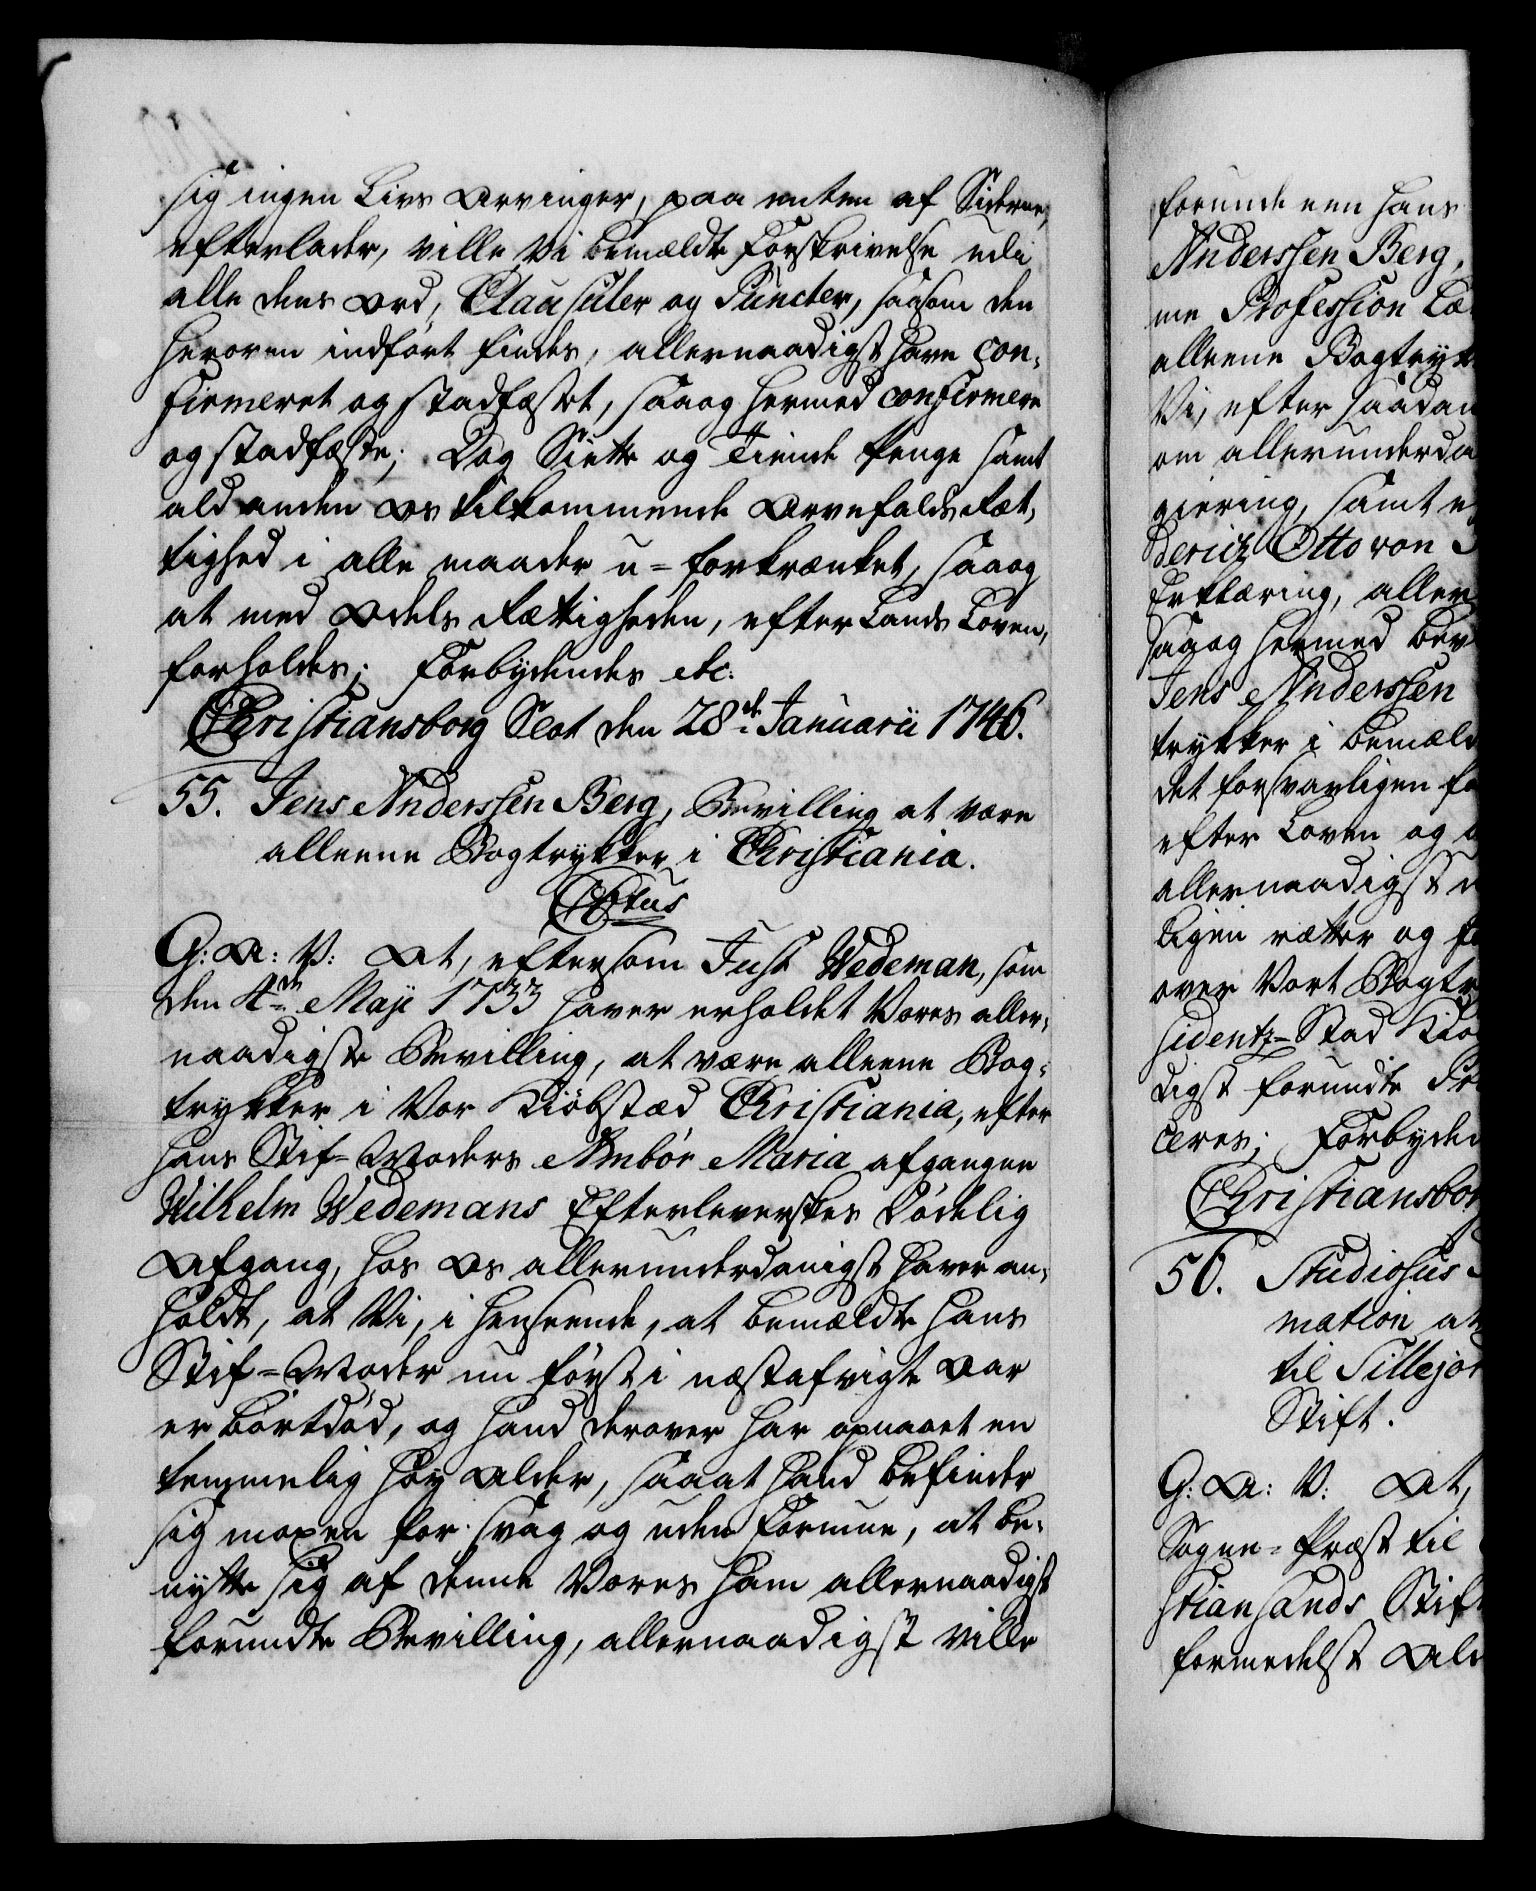 sig ingen Livs Arvinger, paa enten af Siderne,
efterlader, ville Vi bemældte Forskrivelse udi
alle dens Ord, Clausuler og Puncter, saasom den
heroven indført findes, allernaadigst have con-
firmeret og stadfæstet, saa og hermed confirmere
og stadfæste; Dog Siette og Tiende Penge samt
ald anden Os tilkommende Arvefalds Ræt-
tighed i alle maader u-forkrænket, saa og
at med Odels Rættigheden, efter Lands Loven,
forholdes; Forbydendes etc:
Christiansborg Slot den 28de Januarii 1746.
55. Jens Anderssen Berg, Bevilling at være
alleene Bogtrykker i Christiania.
G: A: V: At, eftersom Just Wedeman, som
den 4de Maji 1733 haver erholdet Vores aller-
naadigste Bevilling, at være alleene Bog-
trykker i Vor Kiøbstæd Christiania, efter
hans Stif-Moders Ambør Maria afgangne
Wilhelm Wedemans Efterleverskes Dødelig
Afgang, hos Os allerunderdanigst haver an-
holdt, at Vi, i henseende, at bemældte hans
Stif-Moder nu først i næstafvigte Aar
er bortdød, og hand derover har opnaaet en
temmelig høy Alder, saa at hand befinder
sig meget for svag og uden Formue, at be-
nytte sig af denne Vores ham allernaadigst
forundte Bevilling, allernaadigst ville
forunde een hans
Anderssen Berg,
me Profession
alleene Bogtryk
Vi, efter saadan
om allerunderda
giering, samt
derich Otto von
Erklæring, aller
saa og hermed bev
Jens Anderssen
trykker i bemæld
det forsvarligen fo
efter Loven og
allernaadigst
ligen rætter og
over Vort Bogtr
sidentz-Stad Kiø
digst forundte Pr
ceres; Forbyden
Christiansbor
56. Studiosus
mation at
til Sillejor
Stift.
G: A: V: At,
Sogne-Præst til
stiansands Stif
formedelst Ald